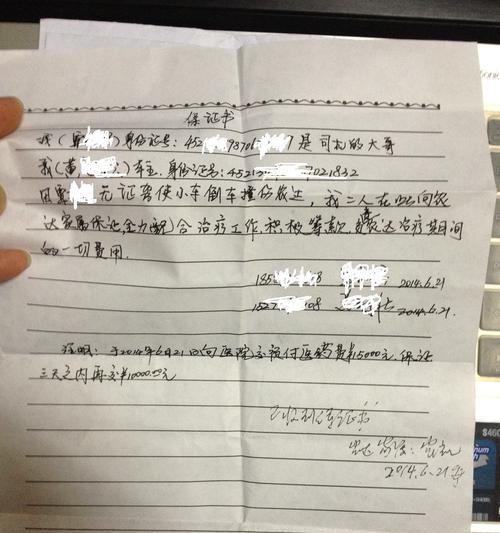 保证书
我( )身份证号:452 78706 7是司机的大哥
我(黄 )车主.身份证号:4521 021832
因 无证驾使小车倒车撞伤 达,我二人在此向农
达家属保证,全力配合治疗工作积极筹款, 达治疗期间
的一切费用.
185 8 2014.6.21
152 108 2014.6.21.
证明:于2014年6月21日向医院交预付医药费¥15000元.保证
三天之内再交¥10000.00元
已收到保证书
家属:
2014.6.21
$460